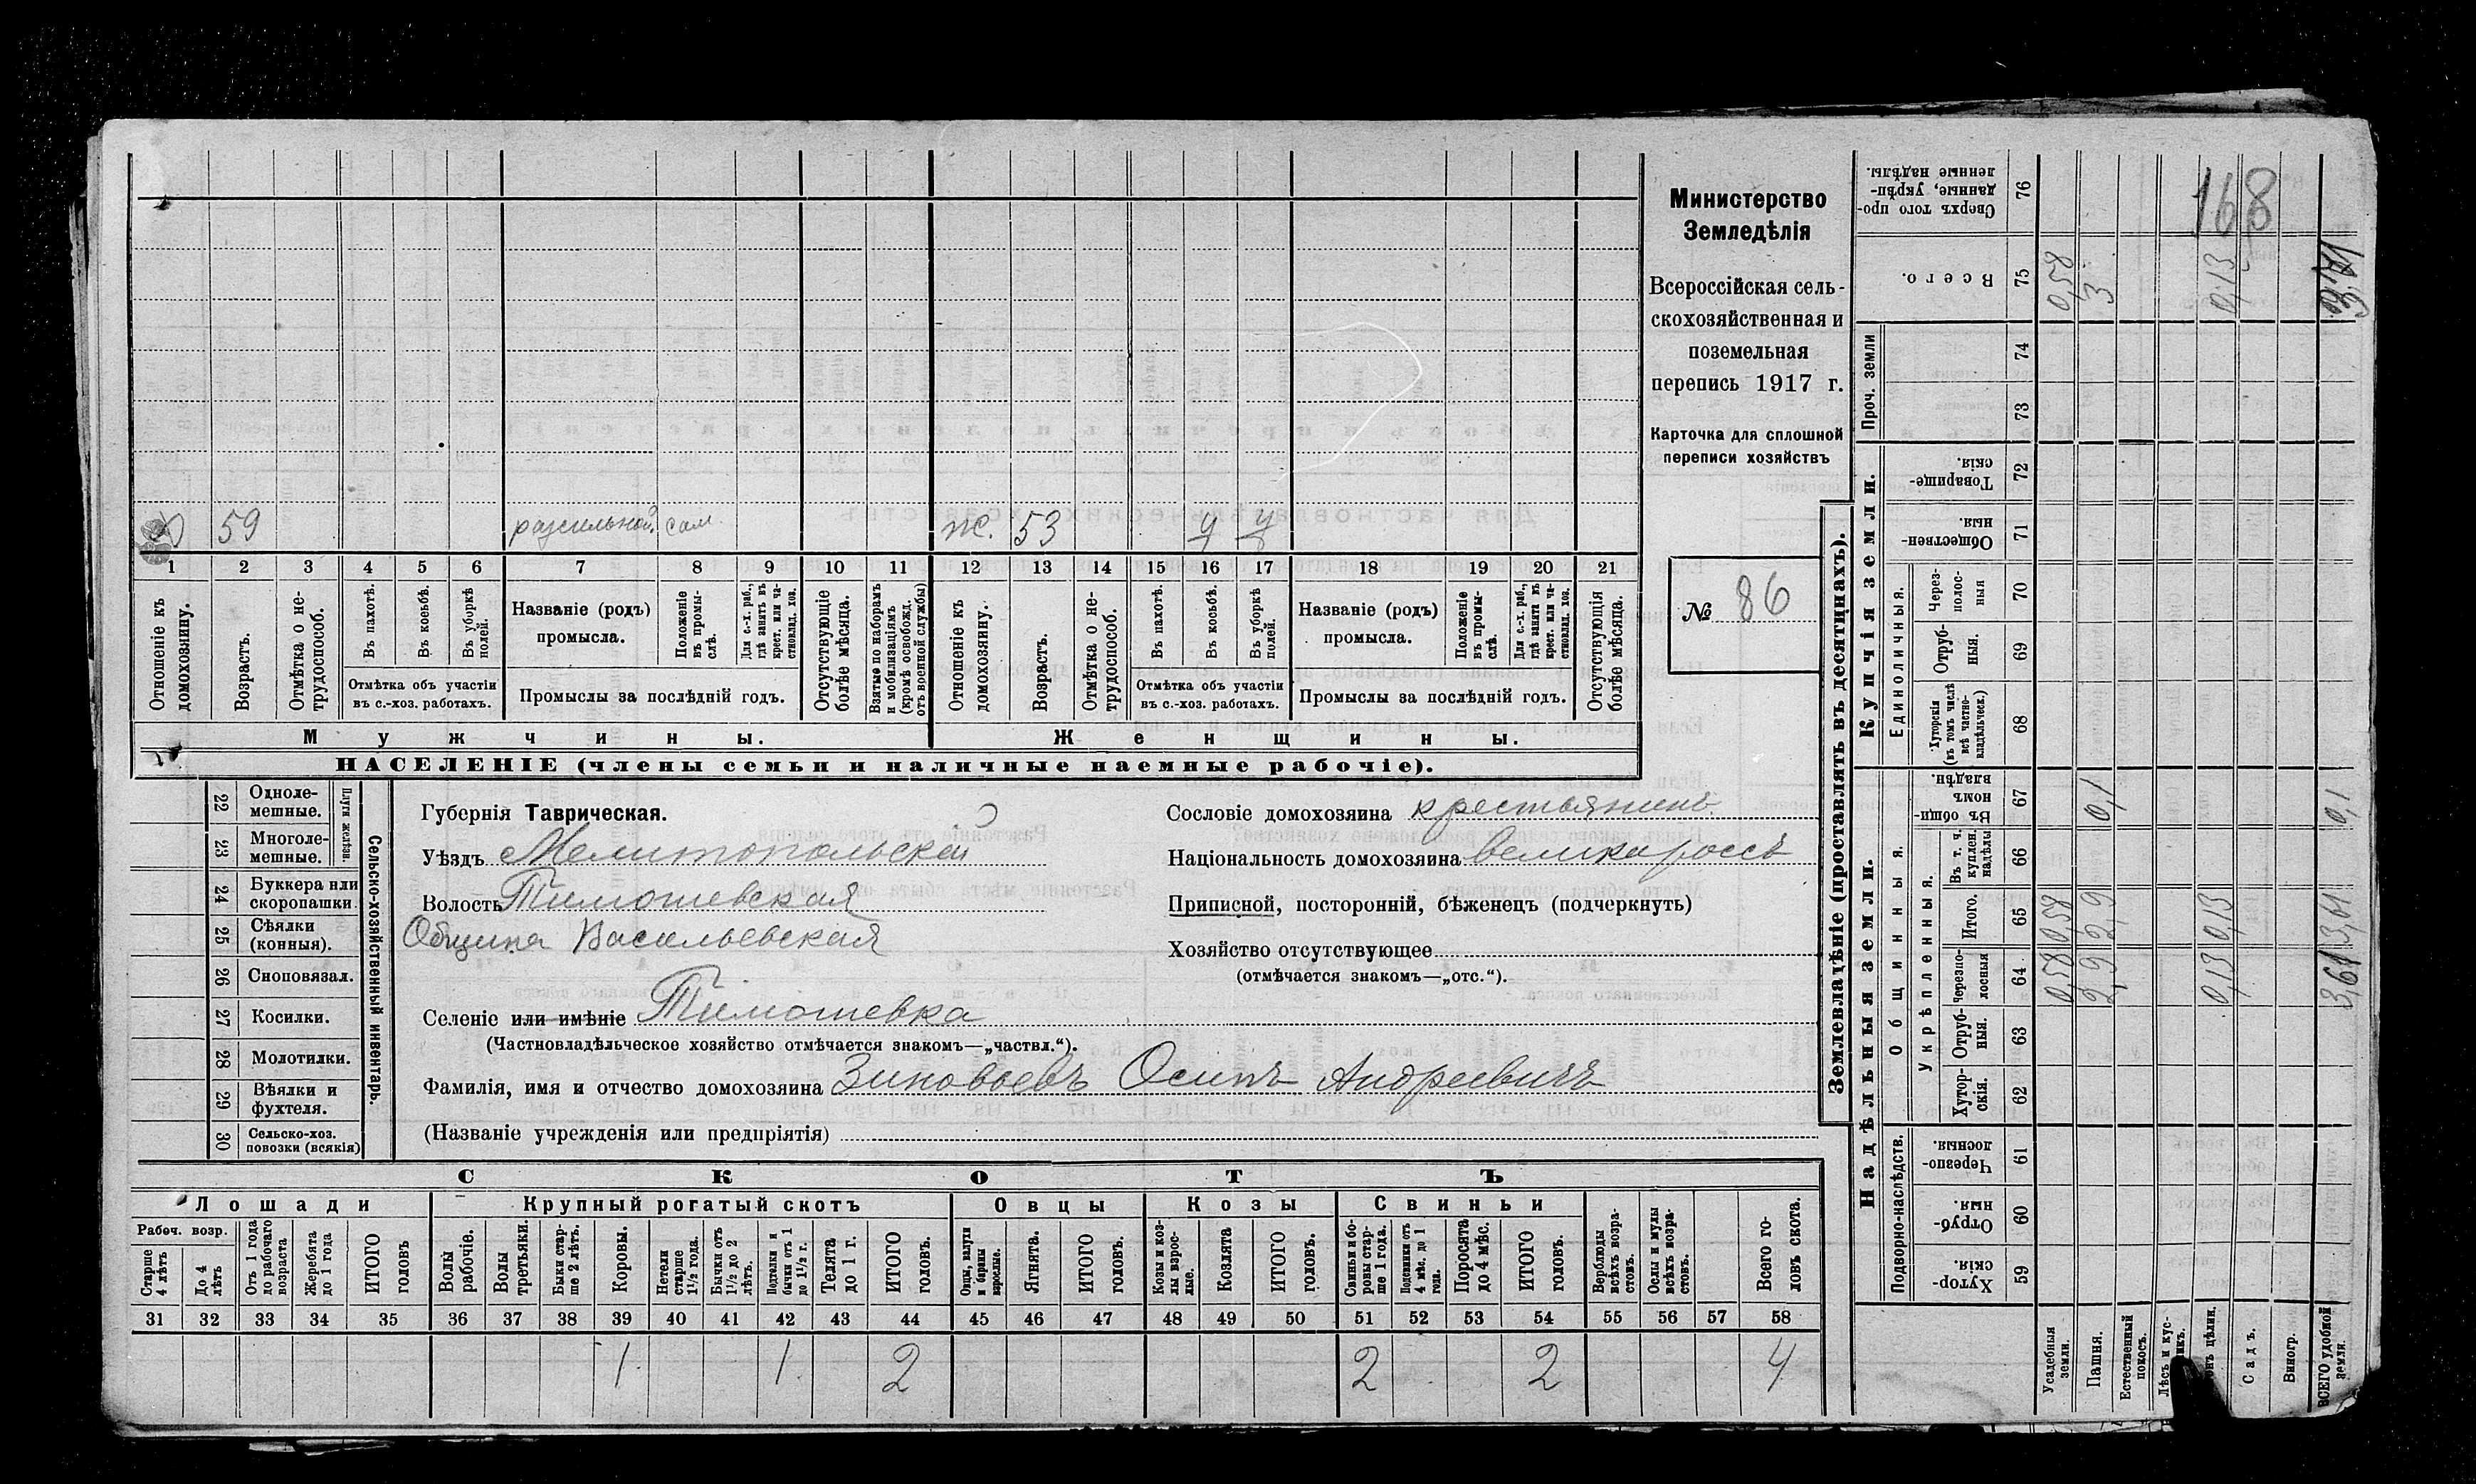 Министерство
Земледѣлія
Всероссійская сель-
скохозяйственная и
поземельная
перепись 1917 г.
Карточка для сплошной
переписи хозяйствъ
№ 86
59 разсильный сам ж. 53 у у
1 2 3 4 5 6 7 8 9 10 11 12 13 14 15 16 17 18 19 20 21
Отношеніе къ домохозяину.
Возрастъ.
Отмѣтка о не-трудоспособ.
Въ пахотѣ.
Въ косьбѣ.
Въ уборкѣ полей.
Отмѣтка объ участіи
въ с.-хоз. работахъ.
Названіе (родъ)
промысла.
Положеніе въ промы-слѣ.
Для с.-х. раб., гдѣ занятъ въ крест. или ча-стновлад. хоз.
Промыслы за послѣдній годъ.
Отсутствующіе болѣе мѣсяца.
Взятые по наборамъ и мобилизаціямъ (кромѣ освобожд. отъ военной службы)
Отношеніе къ домохозяину.
Возрастъ.
Отмѣтка о не-трудоспособ.
Въ пахотѣ.
Въ косьбѣ.
Въ уборкѣ полей.
Отмѣтка объ участіи
въ с.-хоз. работахъ.
Названіе (родъ)
промысла.
Положеніе въ промы-слѣ.
Для с.-х. раб., гдѣ занята въ крест. или ча-стновлад. хоз.
Промыслы за послѣдній годъ.
Отсутствующія болѣе мѣсяца.
Мужчины. Женщины.
НАСЕЛЕНІЕ (члены семьи и наличные наемные рабочіе).
22 Одноле-
мешные.
23 Многоле-
мешные.
Плуги желѣзн.
24 Буккера или
скоропашки.
25 Сѣялки
(конныя).
26 Сноповязал.
27 Косилки.
28 Молотилки.
29 Вѣялки и
фухтеля.
30 Сельско-хоз.
повозки (всякія)
Сельско-хозяйственный инвентарь.
Губернія Таврическая.
Уѣздъ Мелитопольскій
Волость Тимошевская
Община Васильевская
Селеніе или имѣніе Тимошевка
(Частновладѣльческое хозяйство отмѣчается знакомъ—„частвл.“).
Фамилія, имя и отчество домохозяина Зиновьевъ Осипъ Андреевичъ
(Названіе учрежденія или предпріятія)
Сословіе домохозяина крестьянинъ
Національность домохозяина великороссъ
Приписной, посторонній, бѣженецъ (подчеркнуть)
Хозяйство отсутствующее
(отмѣчается знакомъ—„отс.“).
СКОТЪ
Лошади Крупный рогатый скотъ Овцы Козы Свиньи
Рабоч. возр.
Старше 4 лѣтъ
До 4 лѣтъ
Отъ 1 года до рабочаго возраста
Жеребята до 1 года
ИТОГО головъ
Волы рабочіе.
Волы третьяки.
Быки стар-ше 2 лѣтъ.
Коровы.
Нетели старше 1½ года.
Бычки отъ 1½ до 2 лѣтъ.
Подтелки и бычки отъ 1 до 1½ г.
Телята до 1 г.
ИТОГО головъ.
Овцы, валухи и бараны взрослые.
Ягнята.
ИТОГО головъ.
Козы и коз-лы взрос-лые.
Козлята
ИТОГО головъ.
Свиньи и бо-ровы стар-ше 1 года.
Подсвинки отъ 4 мѣс. до 1 года.
Поросята до 4 мѣс.
ИТОГО головъ.
Верблюды всѣхъ возра-стовъ.
Ослы и мулы всѣхъ возра-стовъ.
Всего го-ловъ скота.
31 32 33 34 35 36 37 38 39 40 41 42 43 44 45 46 47 48 49 50 51 52 53 54 55 56 57 58
1 1 2 2 2 4
Землевладѣніе (проставлять въ десятинахъ).
Сверхъ того про-данные, укрѣп-ленные надѣлы. 76 168
Всего. 75 0,58 3 0,13
Проч. земли 74 73
Купчія земли.
Товарище-скія. 72
Обществен-ныя. 71
Единоличныя.
Через-полос-ныя 70
Отруб-ныя. 69
Хуторскія (въ томъ числѣ всѣ частно-владѣльческ.) 68
Надѣльныя земли.
Общинныя.
Въ общин-номъ владѣн. 67 0,1 0,1
Укрѣпленныя.
Въ т. ч. куплен. надѣлы 66
Итого. 65 0,58 2,9 0,13 3,61
Черезпо-лосныя 64 0,58 2,9 0,13 3,61
Отруб-ныя. 63
Хутор-скія. 62
Подворно-наслѣдств.
Черезпо-лосныя. 61
Отруб-ныя. 60
Хутор-скія. 59
Усадебныя земли.
Пашня.
Естественный покосъ.
Лѣсъ и кус-
цѣлин.
Садъ.
Виногр.
ВСЕГО удобной земли.